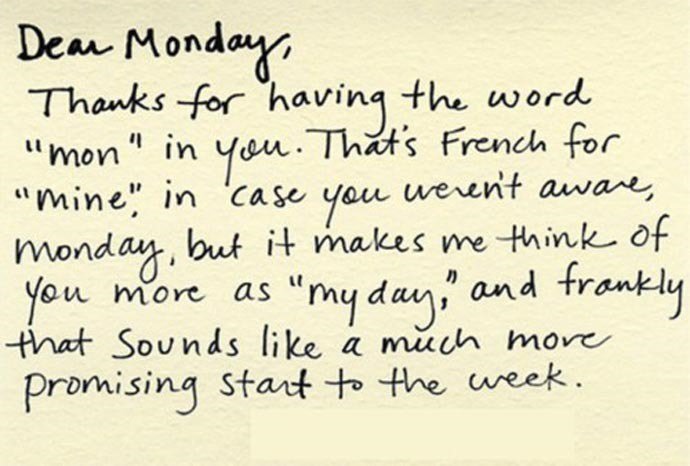 Dear Monday,
Thanks for having the word
"mon" in you. That's French for
"mine", in case you weren't aware,
Monday, but it makes me think of
you more as "my day," and frankly
that sounds like a much more
promising start to the week.